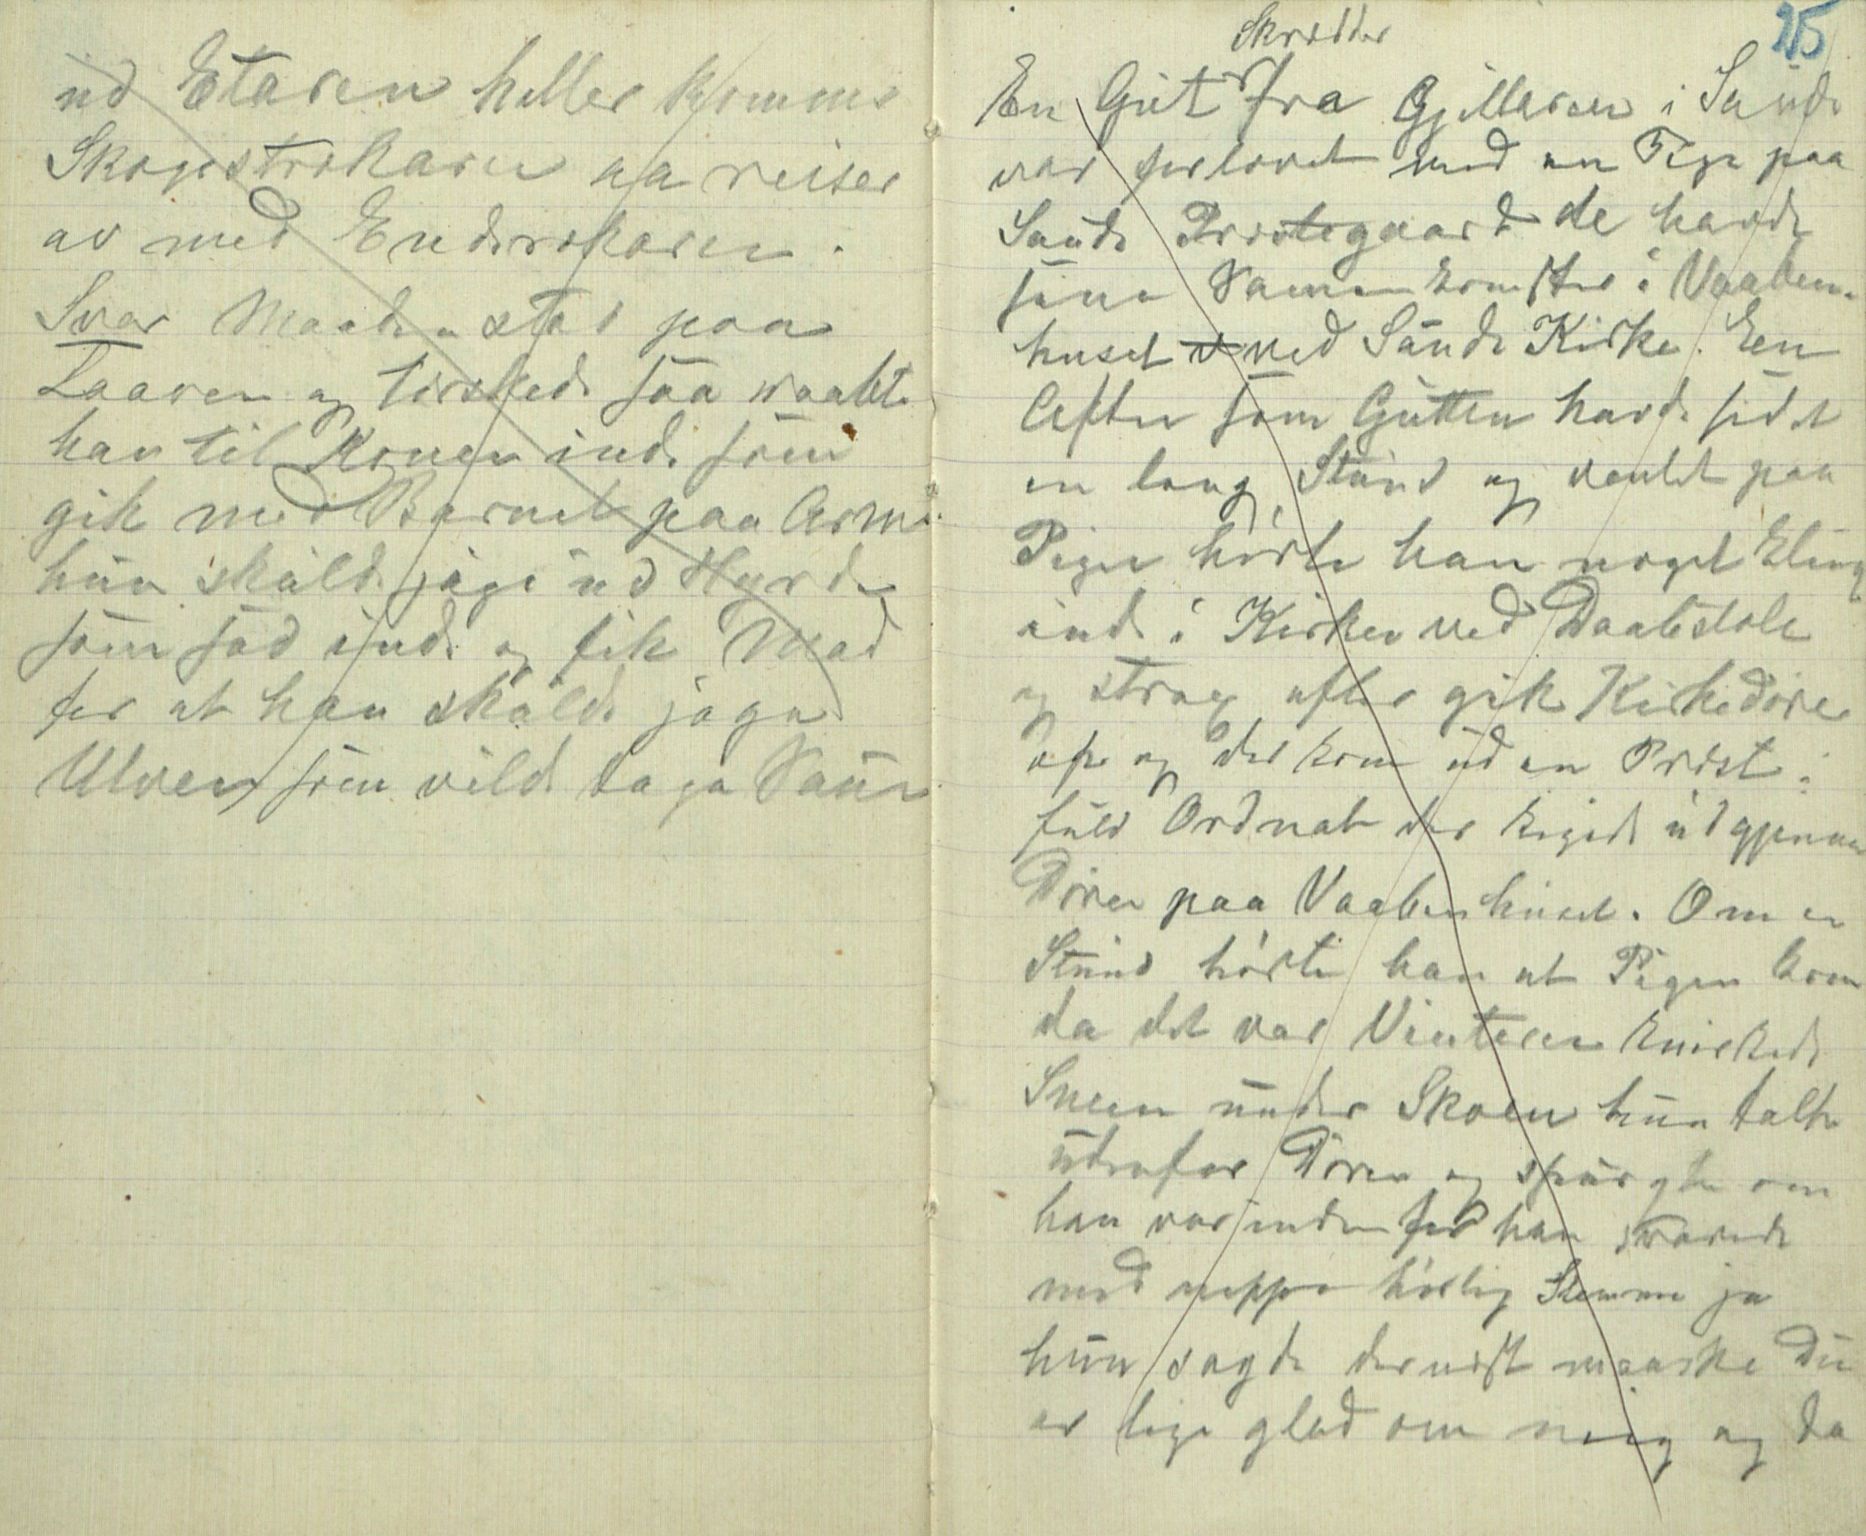 ud Etaren heller kommer
Skogstrokaren aa reiser
av med Enderokaren.
Svar Manden stod paa
Laaven og tørskede saa raabte
han til Konen inde som
gik med Barnet paa Arm
hun skulde jage ud Hyrden
som sad inde og fik Mad
for at han skulde jage
Ulven som vilde taga Sauen
25
Skrædder
En Gut fra Gjilleren i Saude
var forlovet med en Pige paa
Saude Prestegaard de havde
sine Sammenkomster i Vaaben-
huset ved Saude Kirke. En
Aften som Gutten havde sidet
en lang Stund og ventet paa
Pigen hørte han noget kling
inde i Kirken ved Daabstolen
og strax efter gik Kirkedøren
op og der kom ud en Prest i
fuld Ordnat der kigede ud gjennem
Døren paa Vaabenhuset. Om en
Stund hørte han at Pigen kom
da det var Vinteren knirkede
Sneen under Skoen hun talte
udenfor Døren og spurgte om
han var indenfor han svarede
med neppe hørlig Stemme ja
hun sagde dernæst maaske Du
er lige glad om mig og da